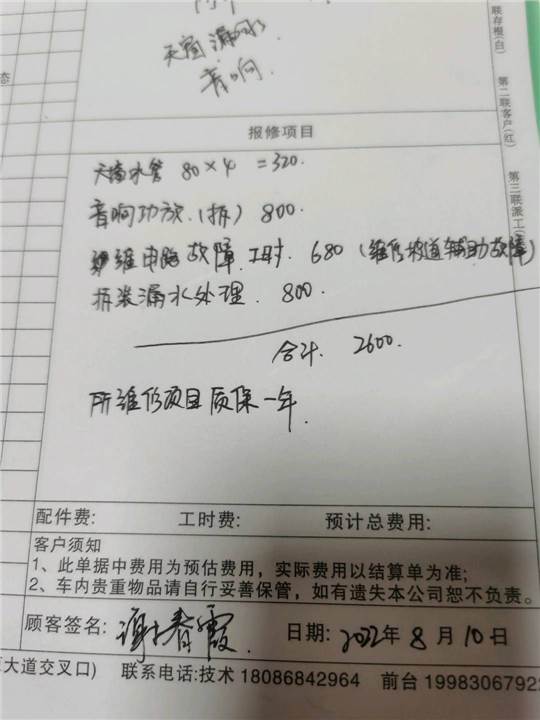 联存根(白)
第二联客户(红)
第三联派工
态
天窗漏水
音响
报修项目
天窗水管 80×4 =320.
音响功放.(拆) 800.
维电路故障.工时. 680 (维修坡道辅助故障)
拆装漏水处理. 800.
合计. 2600.
所维修项目质保一年.
配件费: 工时费: 预计总费用:
客户须知
1、此单据中费用为预估费用，实际费用以结算单为准;
2、车内贵重物品请自行妥善保管，如有遗失本公司恕不负责。
顾客签名: 谢春霞 日期: 2022年 8 月 10 日
大道交叉口) 联系电话:技术 18086842964 前台 1998306792